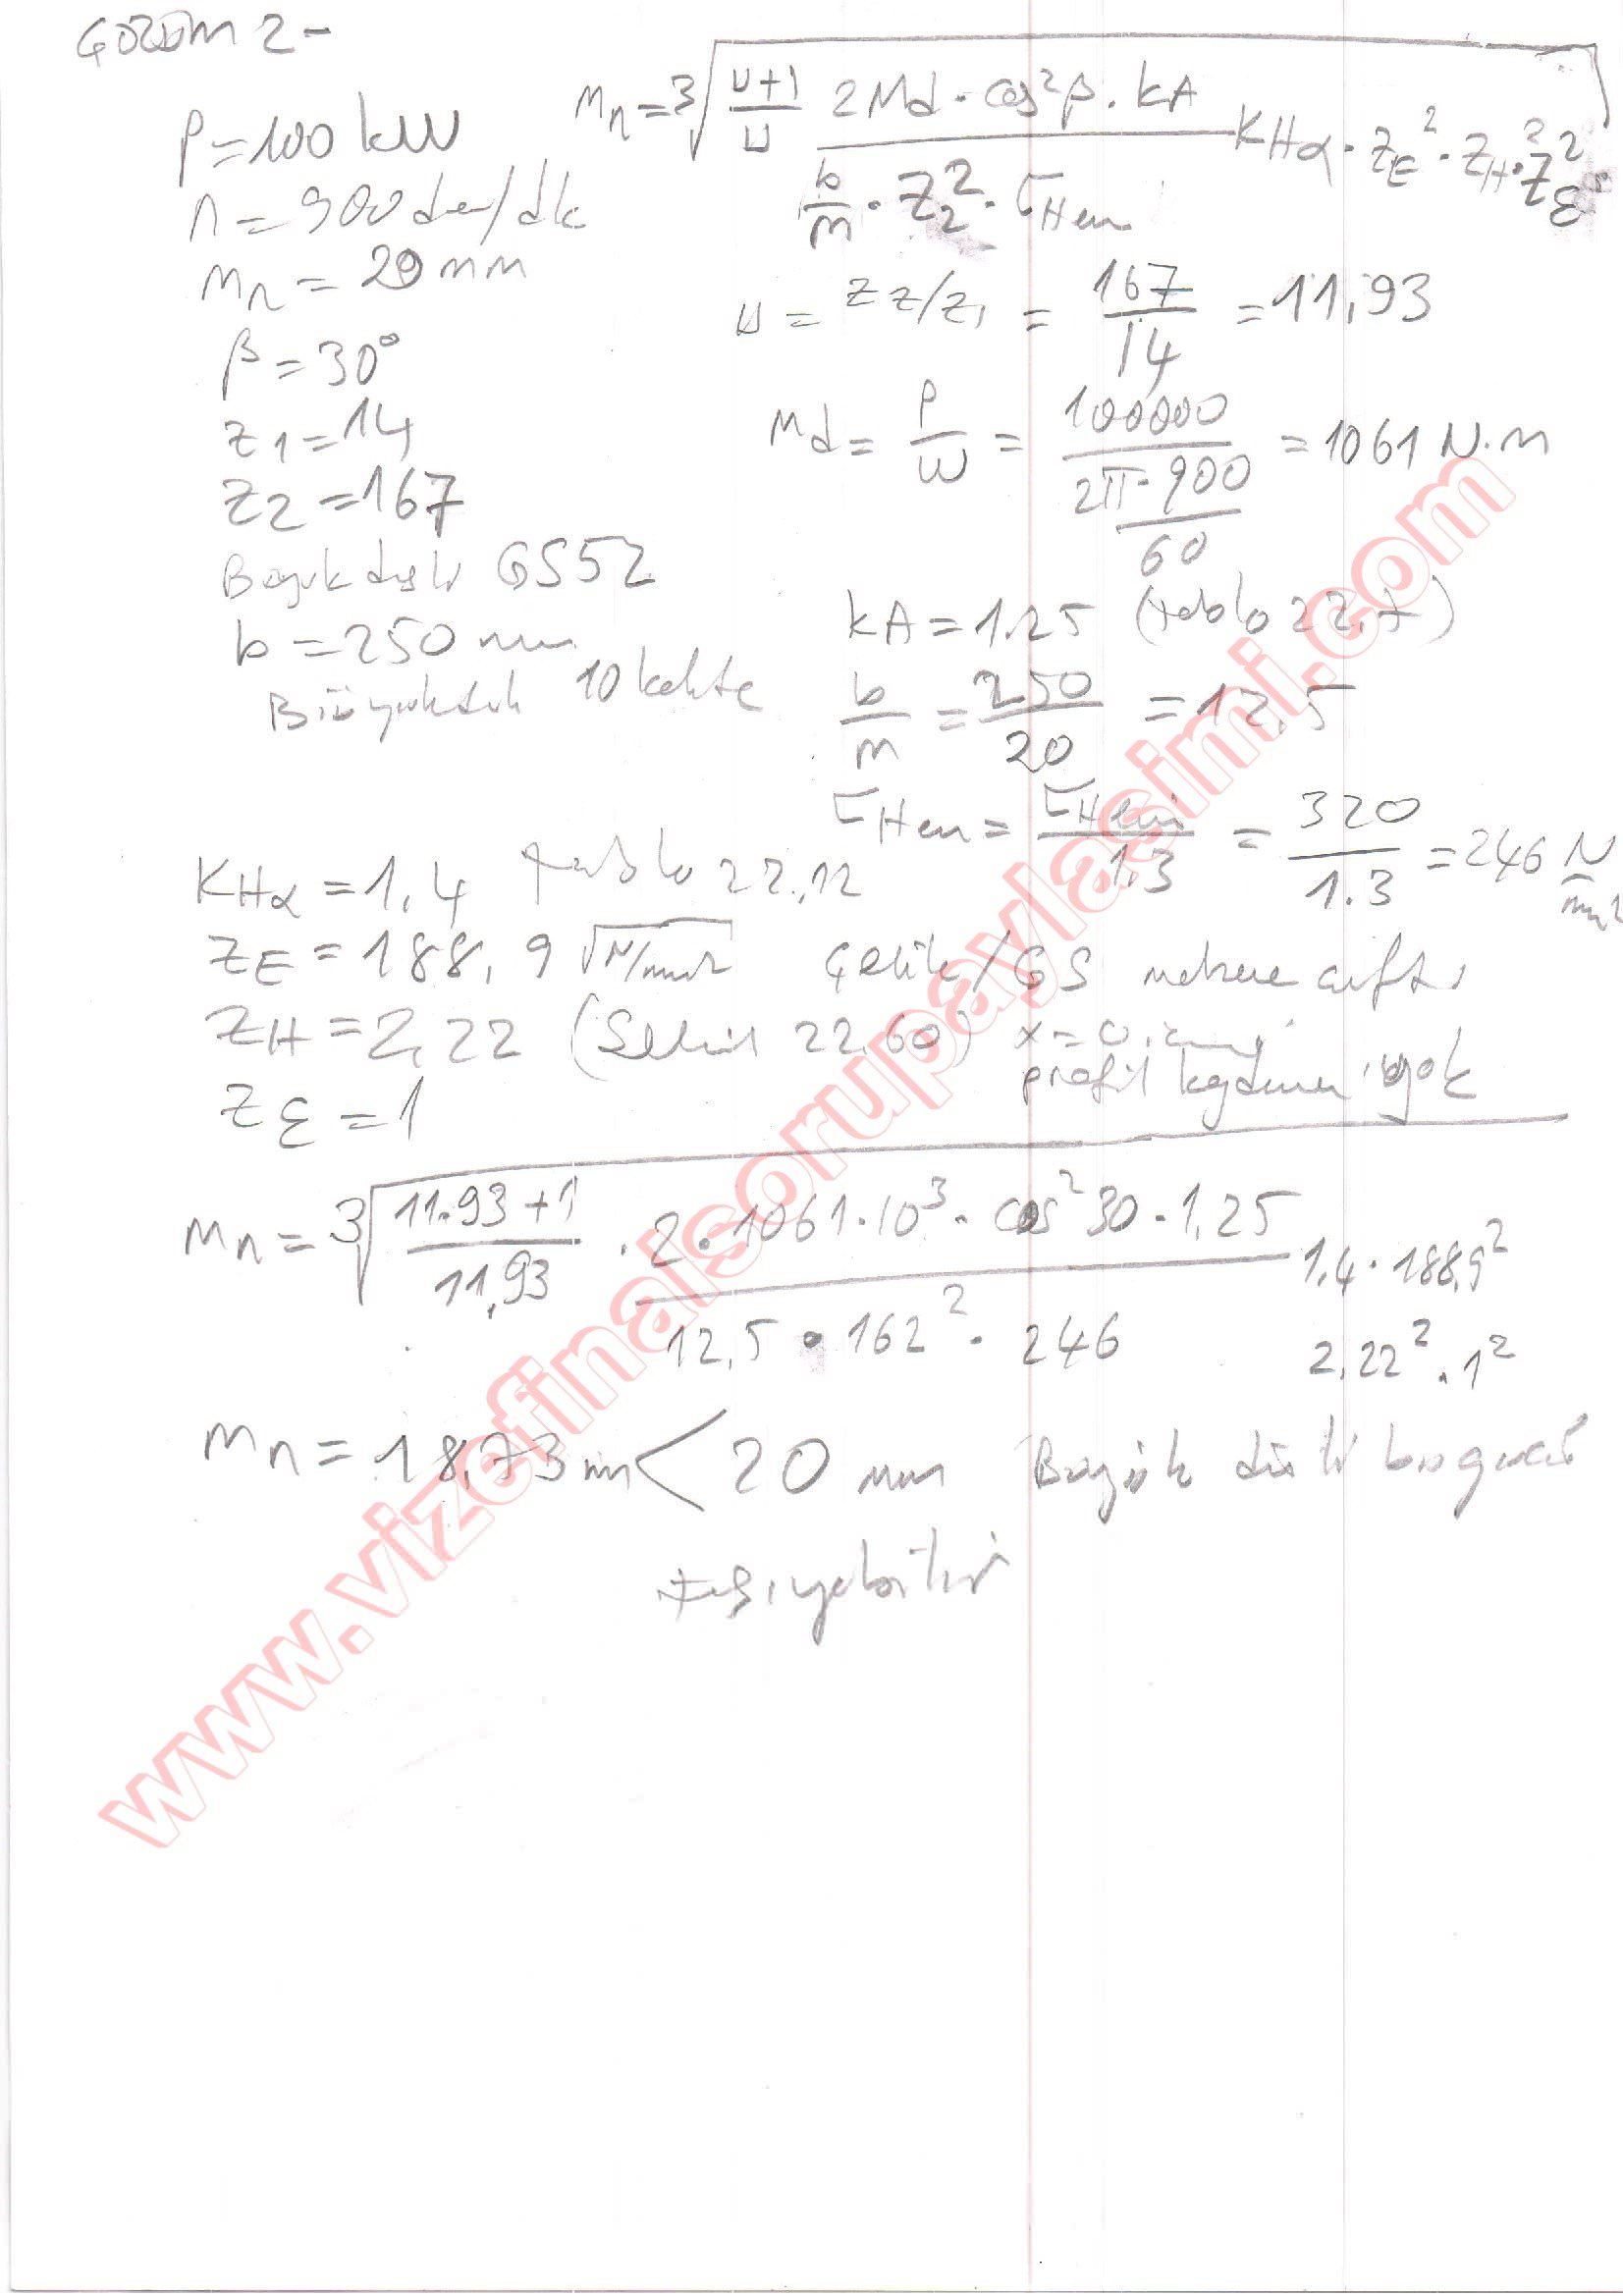 ÇÖZÜM 2-
P=100 kW
n=900 dev/dk
mn=20 mm
β=30°
z1=14
z2=167
Büyük dişli GS52
b=250 mm
10 kalite
mn=3√ u+1/u 2Md·cos²β·kA / b/m·Z2²·σHem KHα·ZE²·ZH²·Zε²
u = z2/z1 = 167/14 = 11,93
Md = P/ω = 100000 / 2π·900/60 = 1061 N·m
kA=1.25 (tablo 22,7)
b/m = 250/20 = 12,5
σHem = σHlim/1.3 = 320/1.3 = 246 N/mm²
KHα=1,4 tablo 22.12
ZE=188,9 √N/mm² Çelik/GS malzeme çifti
ZH=2,22 (Şekil 22.60) x=0
profil kaydırma yok
Zε=1
mn=3√ 11.93+1/11,93 · 2·1061·10³·cos²30·1,25 / 12,5·162²·246 1,4·188,9² 2,22²·1²
mn=18,73 mm < 20 mm Büyük dişli
taşıyabilir
www.vizefinalsorupaylasimi.com